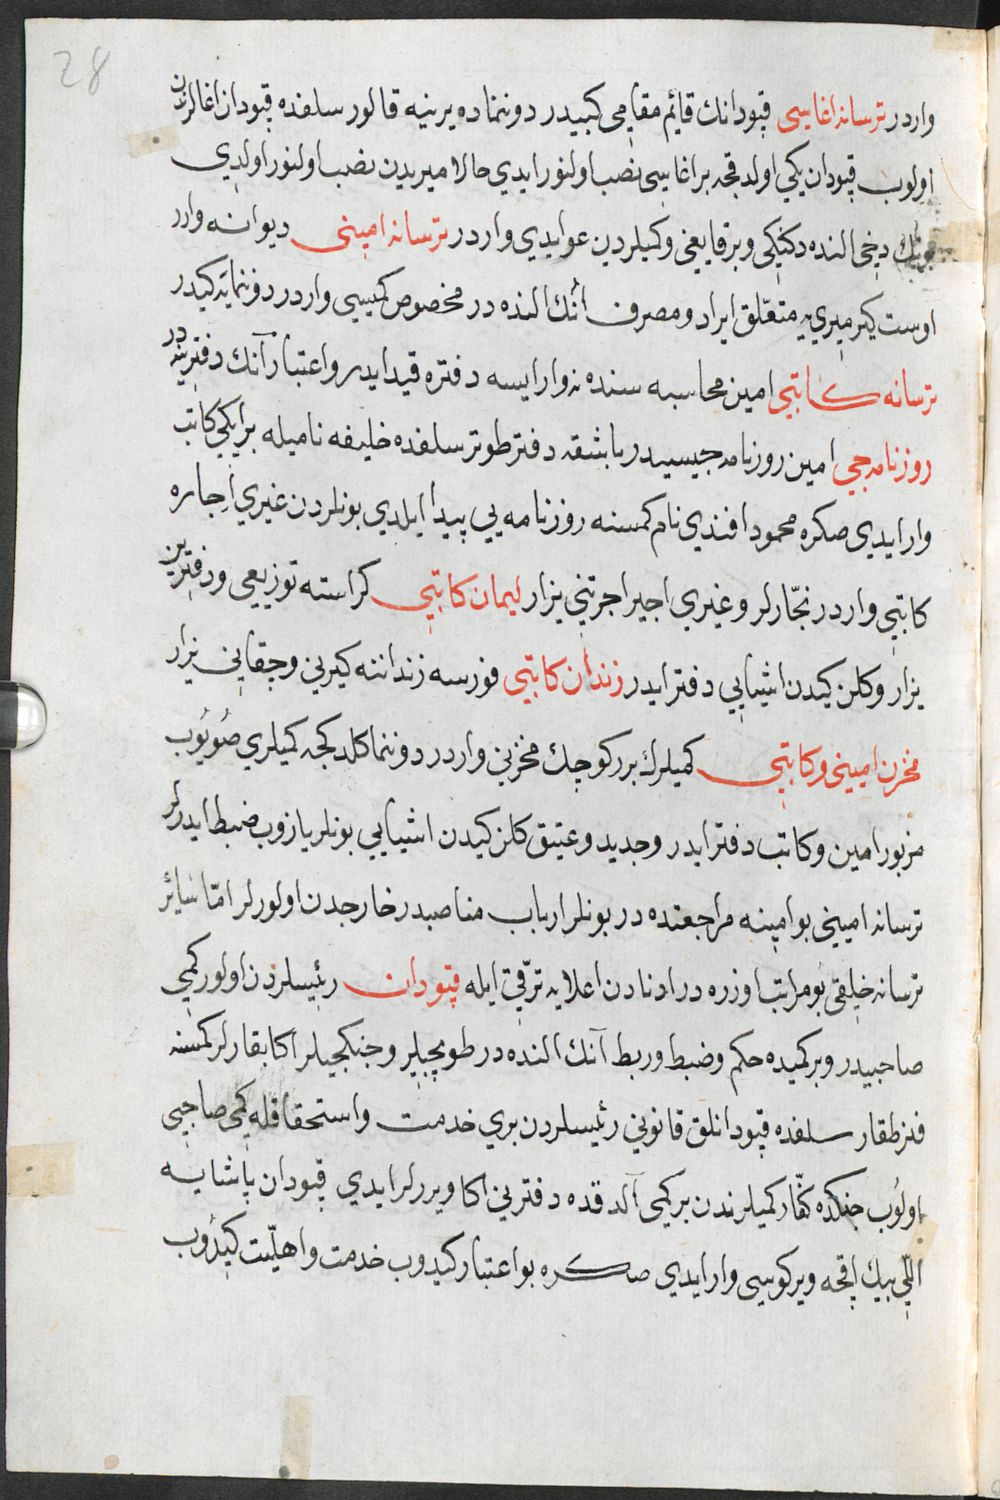 28
واردر ترسانه اغاسی قپودانك قائم مقامی كبیدر دوننماده یرینه قالور سلفده قپودان اغالرندن
اولوب قپودان یكی اولدقچه بر اغاسی نصب اولنور ایدي حالا میریدن نصب اولنور اولدي
بونك دخی النده دكنكی و برقایغی و كمیلردن عوایدي واردر ترسانه امینی دیوانه وارر
اوست كیر میري یه متعلق ایراد و مصرف انك النده در مخصوص كمیسی واردر دوننمایه كیدر
ترسانه كاتبی امین محاسبه سنده نه وارایسه دفتره قید ایدر و اعتبار آنك دفترینه در
روزنامه جی امین روزنامه جیسیدر باشقه دفتر طوتر سلفده خلیفه نامیله بر ایكی كاتب
وار ایدي صكره محمود افندي نام كمسنه روزنامه یی پیدا ایلدي بونلردن غیري اجاره
كاتبی واردر نجّارلر و غیري اجیر اجرتنی یزار لیمان كاتبی كراسته توزیعی و دفترین
یزار و كلن كیدن اشیایی دفتر ایدر زندان كاتبی فورسه زنداننه كیرنی و چقانی یزار
مخزن امینی و كاتبی كمیلرك برر كوچك مخزنی واردر دوننما كلدكجه كمیلري صُویُوب
مزبور امین و كاتب دفتر ایدر و جدید و عتیق كلن كیدن اشیایی بونلر یازوب ضبط ایدرلر
ترسانه امینی بو امینه مراجعنده در بونلر ارباب مناصبدر خارجدن اولورلر امّا سائر
ترسانه خلقی بو مراتب اوزره در ادنادن اعلایه ترقّی ایله قپودان رئیسلردن اولور كمی
صاحبیدر و بر كمیده حكم و ضبط و ربط آنك النده در طوپجیلر و جنكجیلر اكا بقارلر كمسنه
فنر طقار سلفده قپودانلق قانونی رئیسلردن بري خدمت و استحقاقله كمی صاحبی
اولُوب جنكده كفّار كمیلرندن بر كمی آلدقده دفترینی اكا ویررلر ایدي قپودان پاشایه
اللّی بیك اقچه ویركوسی وار ایدي صكره بو اعتبار كیدوب خدمت و اهلیّت كیدُوب